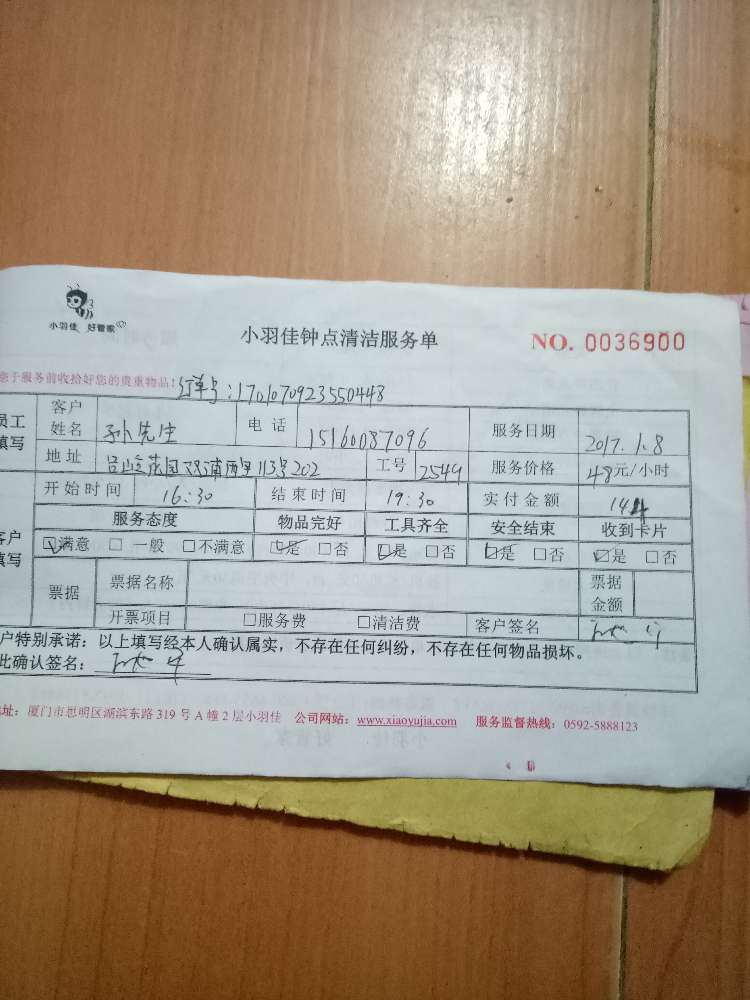 小羽佳 好管家
小羽佳钟点清洁服务单
NO. 0036900
您于服务前收拾好您的贵重物品!
订单号:1701070923550448
员工填写
客户姓名 孙先生 电话 15160087096 服务日期 2017.1.8
地址 花园 113号202 工号 2549 服务价格 48元/小时
开始时间 16:30 结束时间 19:30 实付金额 144
客户填写
服务态度 物品完好 工具齐全 安全结束 收到卡片
☑满意 □一般 □不满意 ☑是 □否 ☑是 □否 ☑是 □否 ☑是 □否
票据 票据名称 票据金额
开票项目 □服务费 □清洁费 客户签名
户特别承诺:以上填写经本人确认属实,不存在任何纠纷,不存在任何物品损坏。
此确认签名:
地址:厦门市思明区湖滨东路 319 号 A 幢 2 层小羽佳 公司网站:www.xiaoyujia.com 服务监督热线:0592-5888123